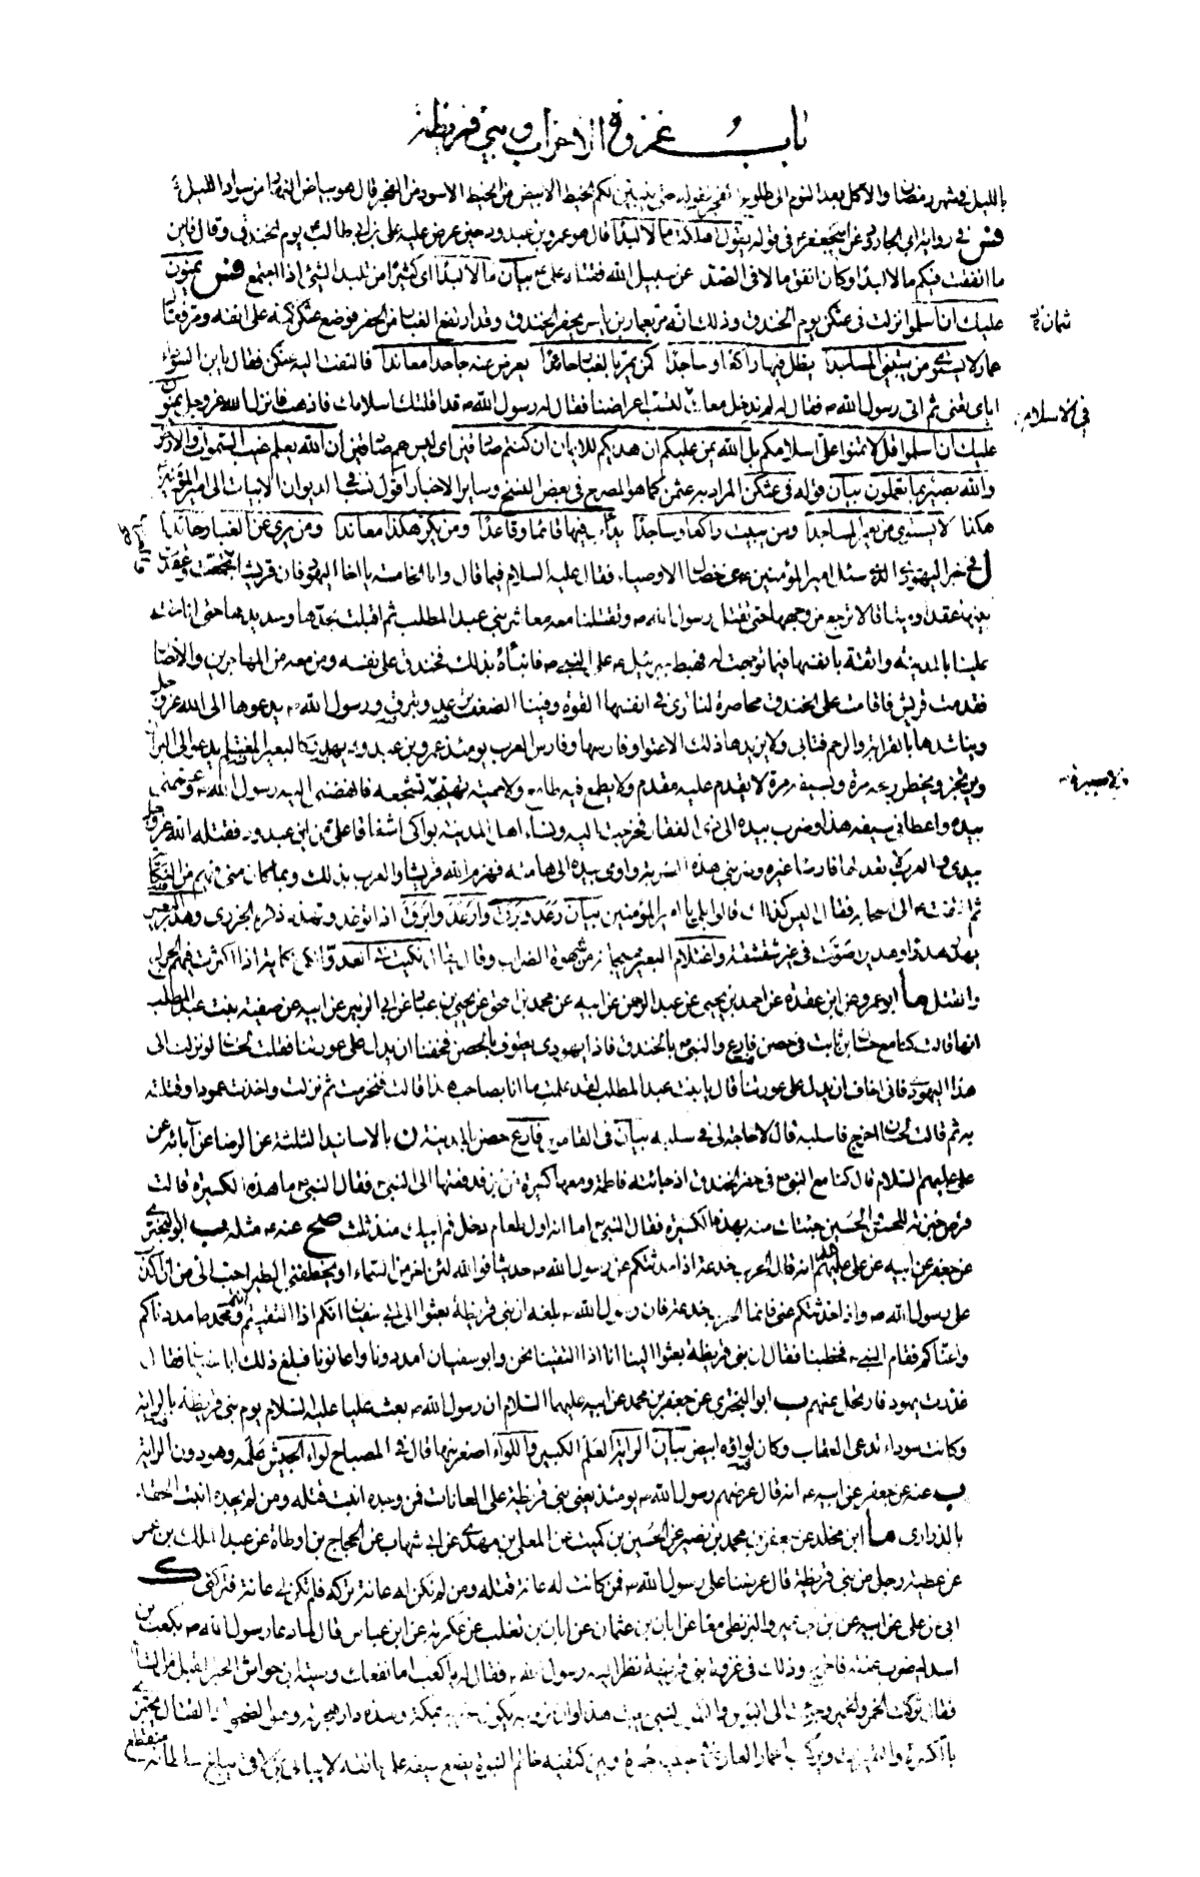 باب غزوة الاحزاب وبني قريظة
بالليل في شهر رمضان والاكل بعد النوم الى طلوع الفجر لقوله حتى يتبين لكم الخيط الابيض من الخيط الاسود من الفجر قال هو بياض النهار من سواد الليل
فس في رواية ابي الجارود عن ابي جعفر ع في قوله يقول اهلكت مالا لبدا قال هو عمرو بن عبدود حين عرض عليه علي بن ابي طالب يوم الخندق وقال فاين
ما انفقت فيكم مالا لبدا وكان انفق مالا في الصد عن سبيل الله فقتله علي ع بيان مالا لبدا اي كثيرا من تلبد الشيء اذا اجتمع فس يمنون
عليك ان اسلموا نزلت في عثكن يوم الخندق وذلك انه مر بعمار بن ياسر يحفر الخندق وقد ارتفع الغبار من الحفر فوضع عثكن كمه على انفه ومر فقال
عمار لا يستوي من يبتني المساجدا يظل فيها راكعا وساجدا كمن يمر بالغبار حائدا يعرض عنه جاحدا معاندا فالتفت اليه عثكن فقال يا ابن السوداء
اياي تعني ثم اتى رسول الله ص فقال له لم ندخل معك لتسب اعراضنا فقال له رسول الله ص قد اقلتك اسلامك فاذهب فانزل الله عز وجل يمنون
عليك ان اسلموا قل لا تمنوا علي اسلامكم بل الله يمن عليكم ان هديكم للايمان ان كنتم صادقين اي ليس هم صادقين ان الله يعلم غيب السموات والارض
والله بصير بما تعملون بيان قوله في عثكن المراد به عثمن كما هو المصرح في بعض النسخ وساير الاخبار اقول نسب في الديوان الابيات الى امير المؤمنين
هكذا لا يستوي من يعمر المساجدا ومن يبيت راكعا وساجدا يدأب فيها قائما وقاعدا ومن يكر هكذا معاندا ومن يرى عن الغبار حائدا
ل في خبر اليهودي الذي سئل امير المؤمنين ع عن خصال الاوصياء فقال عليه السلام فيما قال واما الخامسة يا اخا اليهود فان قريشا والعرب تجمعت وعقدت
بينها عقدا وميثاقا لا ترجع من وجهها حتى تقتل رسول الله ص وتقتلنا معه معاشر بني عبد المطلب ثم اقبلت بحدها وحديدها حتى اناخت
علينا بالمدينة واثقة بانفسها فيما توجهت له فهبط جبرئيل ع على النبي ص فانبأه بذلك فخندق على نفسه ومن معه من المهاجرين والانصار
فقدمت قريش فاقامت على الخندق محاصرة لنا ترى في انفسها القوة وفينا الضعف ترعد وتبرق ورسول الله ص يدعوها الى الله عز وجل
ويناشدها بالقرابة والرحم فتابى ولا يزيدها ذلك الا عتوا وفارسها وفارس العرب يومئذ عمرو بن عبدود يهدر كالبعير المغتلم يدعو الى البراز
ويرتجز ويخطر برمحه مرة وبسيفه مرة لا يقدم عليه مقدم ولا يطمع فيه طامع ولا حمية تهيجه تشجعه فانهضني اليه رسول الله ص وعممني
بيده واعطاني سيفه هذا وضرب بيده الى ذي الفقار فخرجت اليه ونساء اهل المدينة بواكي اشفاقا علي من ابن عبدود فقتله الله عز وجل
بيدي والعرب لا تعد لها فارسا غيره وضربني هذه الضربة واومى بيده الى هامته فهزم الله قريشا والعرب بذلك وبما كان مني فيهم من النكاية
ثم التفت ع الى اصحابه فقال اليس كذلك قالوا بلى يا امير المؤمنين بيان رعد وبرق وارعد وابرق اذا توعد وتهدد ذكره الجزري وهدر البعير
يهدر هدرا وهديرا صوت في غير شقشقة واغتلام البعير هيجانه من شهوة الضراب وقال يقال نكيت في العدو انكي نكاية اذا اكثرت فيهم الجراح
والقتل ما ابو عمرو عن ابن عقدة عن احمد بن يحيى عن عبد الرحمن عن ابيه عن محمد بن اسحق عن يحيى بن عباد عن ابي الزبير عن ابيه عن صفية بنت عبد المطلب
انها قالت كنا مع حسان بن ثابت في حصن فارع والنبي ص بالخندق فاذا يهودي يطوف بالحصن فخفنا ان يدل على عورتنا فقلت لحسان لو نزلت الى
هذا اليهودي فاني اخاف ان يدل على عورتنا قال يا بنت عبد المطلب لقد علمت ما انا بصاحب هذا قالت فتحزمت ثم نزلت واخذت عمودا وقتلته
به ثم قالت لحسان اخرج فاسلبه قال لا حاجة لي في سلبه بيان في القاموس فارع حصن بالمدينة ن بالاسانيد الثلثة عن الرضا عن آبائه عن
علي عليهم السلام قال كنا مع النبي ص في حفر الخندق اذ جائته فاطمة ومعها كسيرة من خبز فدفعتها الى النبي ص فقال النبي ص ما هذه الكسيرة قالت
قرص خبزته للحسن والحسين جئتك منه بهذه الكسيرة فقال النبي ص اما انه اول طعام دخل فم ابيك منذ ثلث صح عنه ع مثله ب ابو البختري
عن جعفر عن ابيه عن علي عليهم السلام انه قال الحرب خدعة اذا حدثتكم عن رسول الله ص حديثا فوالله لئن اخر من السماء او يخطفني الطير احب الي من ان اكذب
على رسول الله ص واذا حدثتكم عني فانما الحرب خدعة فان رسول الله ص بلغه ان بني قريظة بعثوا الى ابي سفيان انكم اذا التقيتم انتم ومحمد ص امددناكم
واعناكم فقام النبي ص فخطبنا فقال ان بني قريظة بعثوا الينا انا اذا التقينا نحن وابو سفيان امددونا واعانونا فبلغ ذلك ابا سفيان فقال
غدرت يهود فارتحل عنهم ب ابو البختري عن جعفر بن محمد عن ابيه عليهما السلام ان رسول الله ص بعث عليا عليه السلام يوم بني قريظة بالراية
وكانت سوداء تدعى العقاب وكان لواؤه ابيض بيان الراية العلم الكبير واللواء اصغر منها قال في المصباح لواء الجيش علمه وهو دون الراية
ب عنه عن جعفر عن ابيه ع انه قال عرضهم رسول الله ص يومئذ يعني بني قريظة على العانات فمن وجده انبت قتله ومن لم يجده انبت الحقه
بالذراري ما ابن مخلد عن جعفر بن محمد بن نصير عن الحسين بن كميت عن المعلى بن مهدي عن ابي شهاب عن الحجاج بن ارطاة عن عبد الملك بن عمير
عن عطية رجل من بني قريظة قال عرضنا على رسول الله ص فمن كانت له عانة قتله ومن لم تكن له عانة تركه فلم تكن لي عانة فتركني ك
ابي عن علي عن ابيه عن ابن ابي عمير والبزنطي معا عن ابان بن عثمان عن ابان بن تغلب عن عكرمة عن ابن عباس قال لما دعا رسول الله ص بكعب بن
اسد ليضرب عنقه فاخرج وذلك في غزوة بني قريظة نظر اليه رسول الله ص فقال له يا كعب اما نفعك وصية ابن حواش الحبر المقبل من الشام
فقال تركت الخمر والخمير وجئت الى البؤس والتمور لنبي يبعث هذا اوان خروجه يكون مخرجه بمكة وهذه دار هجرته وهو الضحوك القتال يجتزي
بالكسرة والتميرات ويركب الحمار العاري في عينيه حمرة وبين كتفيه خاتم النبوة يضع سيفه على عاتقه لا يبالي بمن لاقى يبلغ سلطانه منقطع
في الاسلام